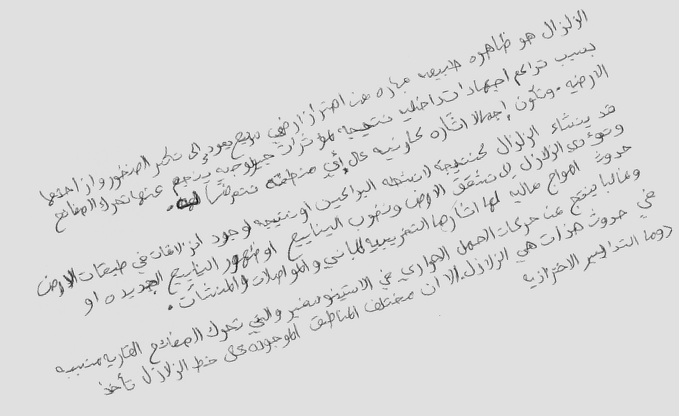 الزلزال هو ظاهره طبيعيه عباره عن اهتزاز ارضي سريع يعود إلى تكسر الصخور وازاحتها
بسبب تراكم اجهادات داخليه نتيجه لمؤثرات جيولوجيه ينجم عنها تحرك الصفائح
الارضيه. وتكون إجمالا اثاره كارثيه على أي منطقه تتعرض لها.
قد ينشاء الزلزال كنتيجه لانشطه البراكين او نتيجه لوجود انزلاقات في طبقات الارض
وتؤدي الزلازل الى تشقق الارض ونضوب الينابيع او ظهور الينابيع الجديده او
حدوث امواج عاليه لها اثارها التخريبيه للمباني والمواصلات والمنشات.
وغالبا ينتج عن حركات الحمل الحراري في الاستينوسفير والتي تحرك الصفائح القاريه متسببه
في حدوث هزات هي الزلازل. الا ان مختلف المناطق الموجوده على خط الزلازل تأخذ
دوما التدابير الاحترازيه